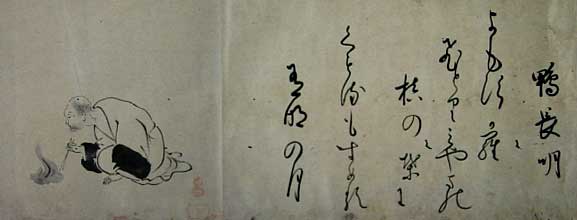 鴨長明
よもすから
ひとりみやまの
槙の葉に
くもるもすめる
有明の月